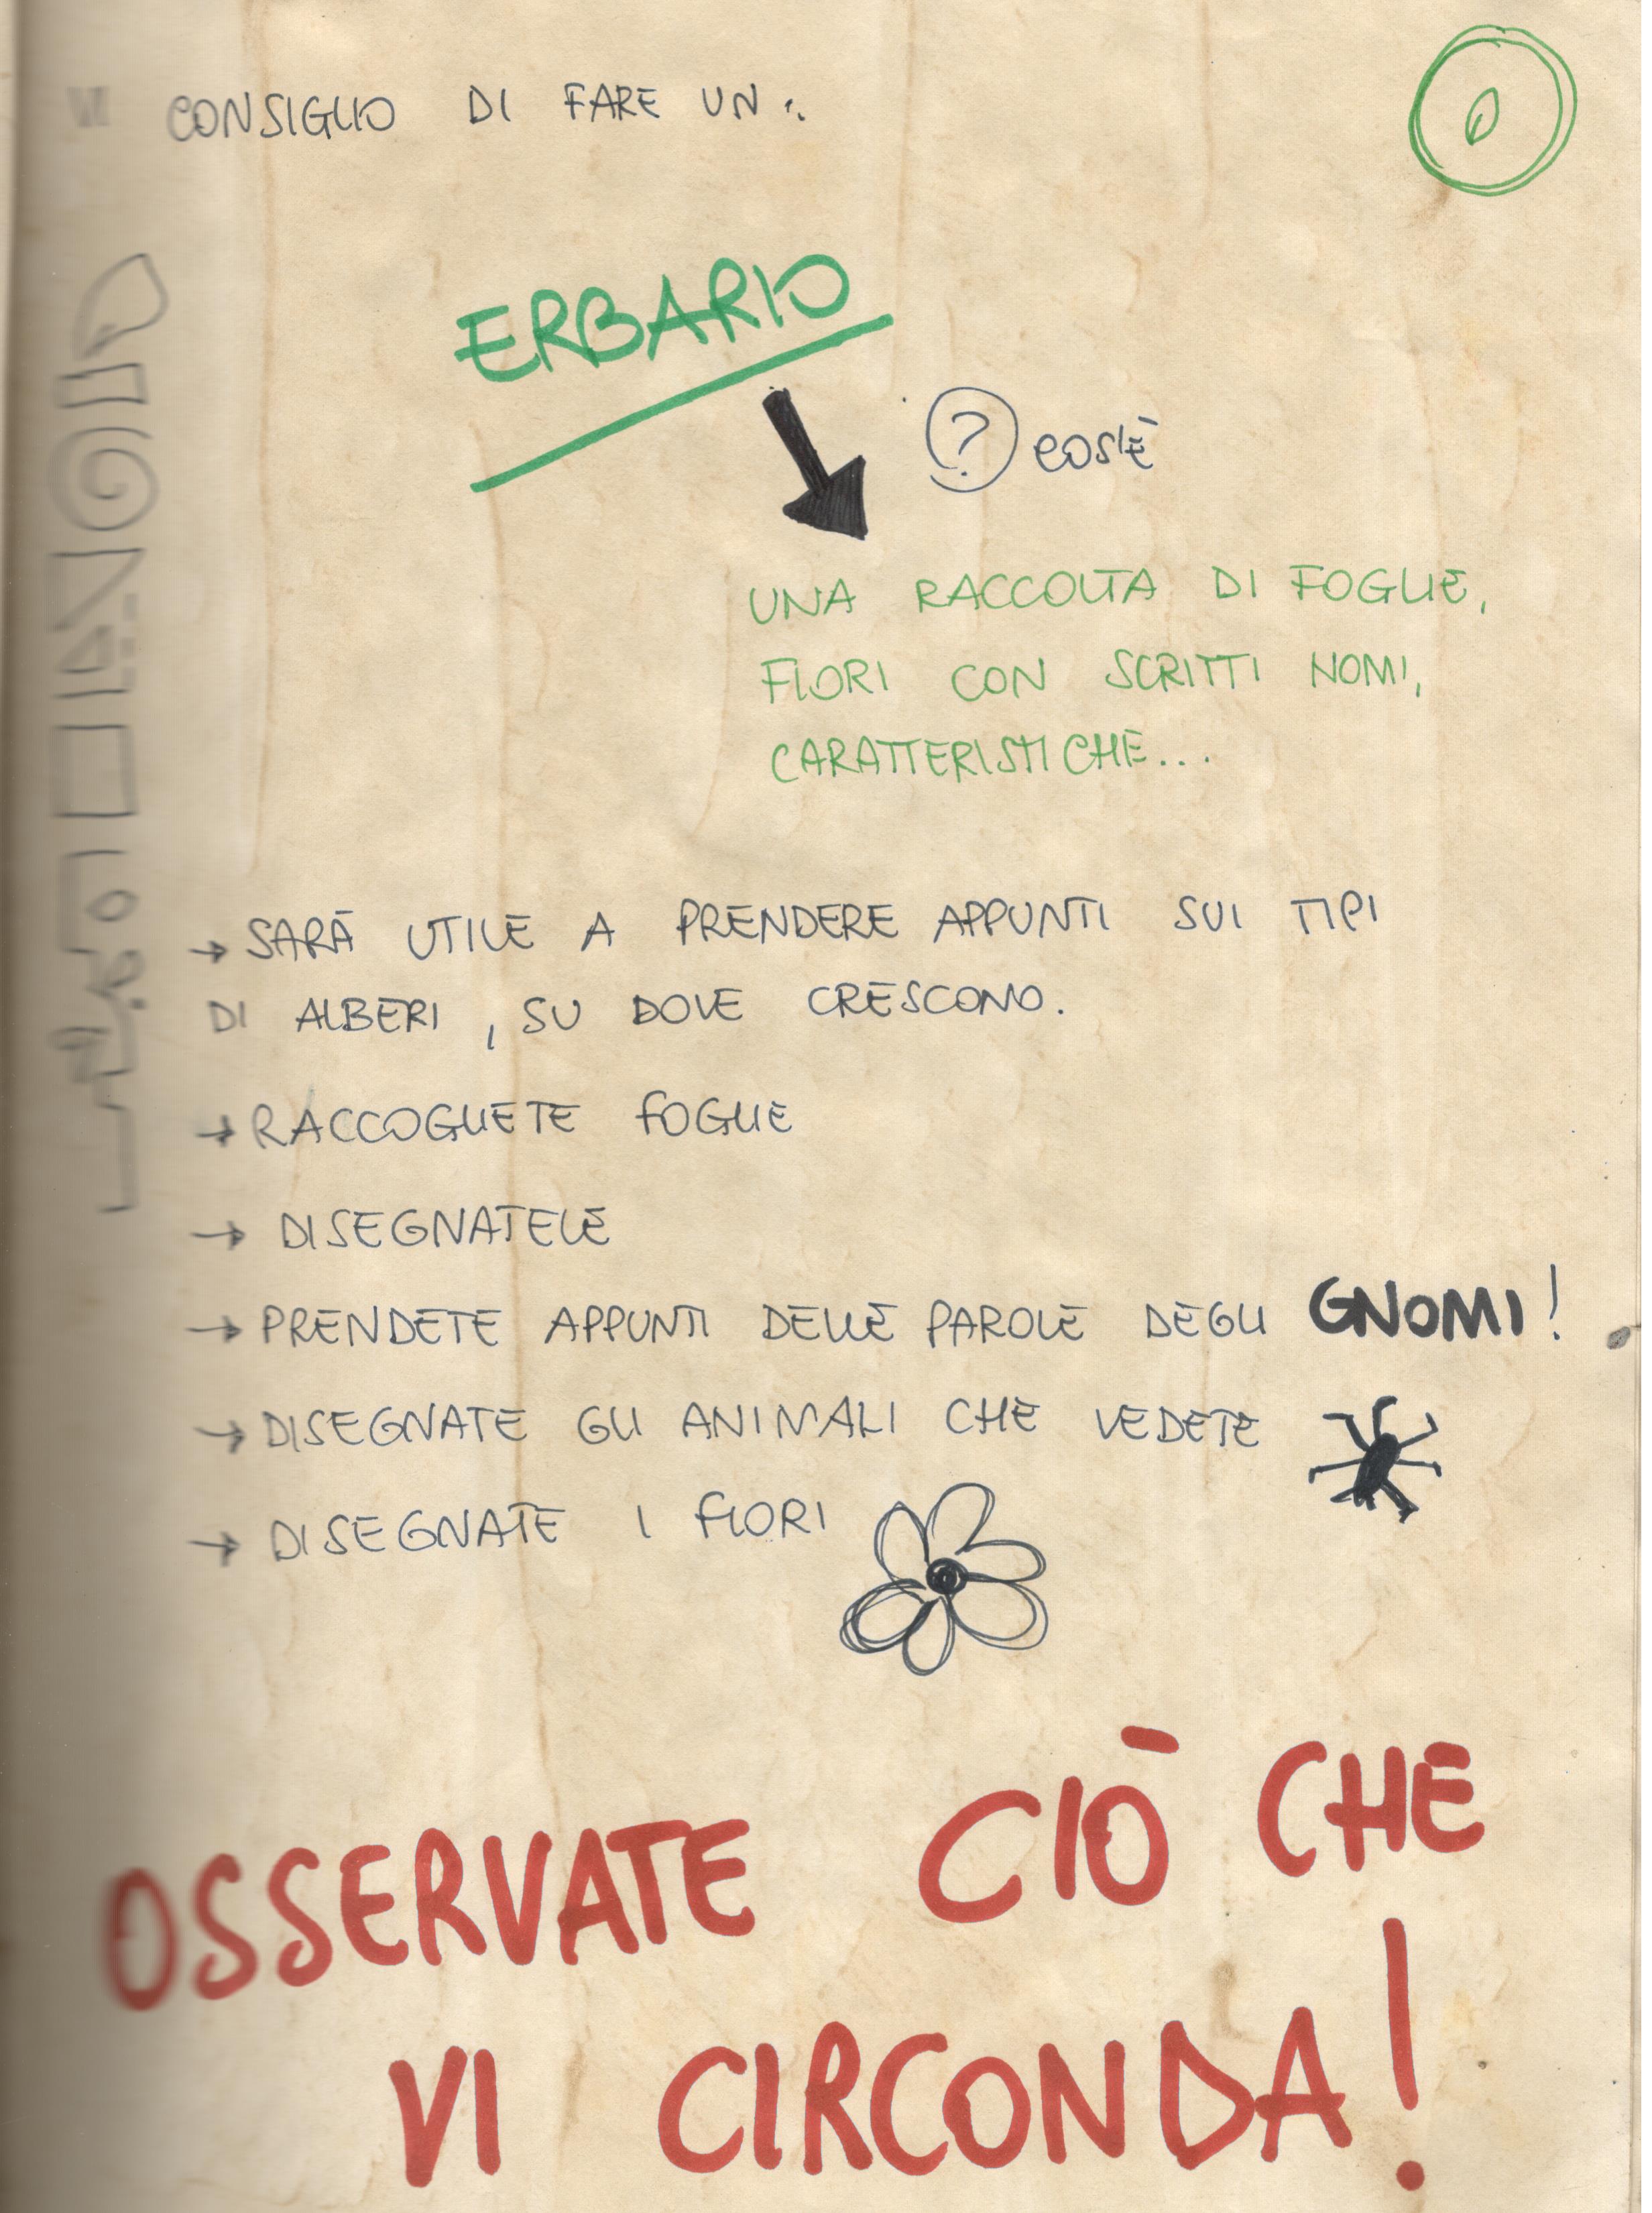 VI CONSIGLIO DI FARE UN:
ERBARIO
? COS'È
UNA RACCOLTA DI FOGLIE,
FIORI CON SCRITTI NOMI,
CARATTERISTICHE...
→ SARÀ UTILE A PRENDERE APPUNTI SUI TIPI
DI ALBERI, SU DOVE CRESCONO.
→ RACCOGLIETE FOGLIE
→ DISEGNATELE
→ PRENDETE APPUNTI DELLE PAROLE DEGLI GNOMI!
→ DISEGNATE GLI ANIMALI CHE VEDETE
→ DISEGNATE I FIORI
OSSERVATE CIÒ CHE
VI CIRCONDA!